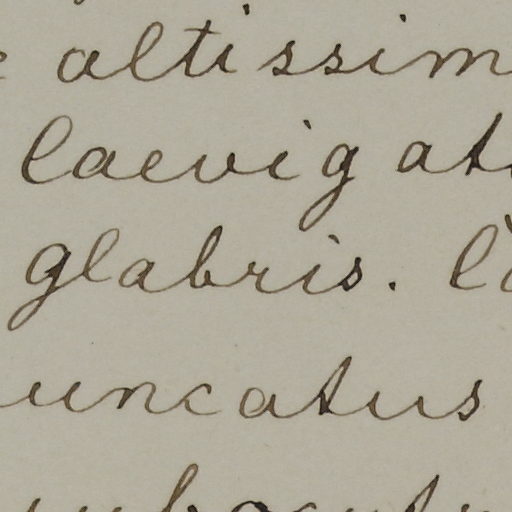 altissim
laevigat
glabris.
uncatus